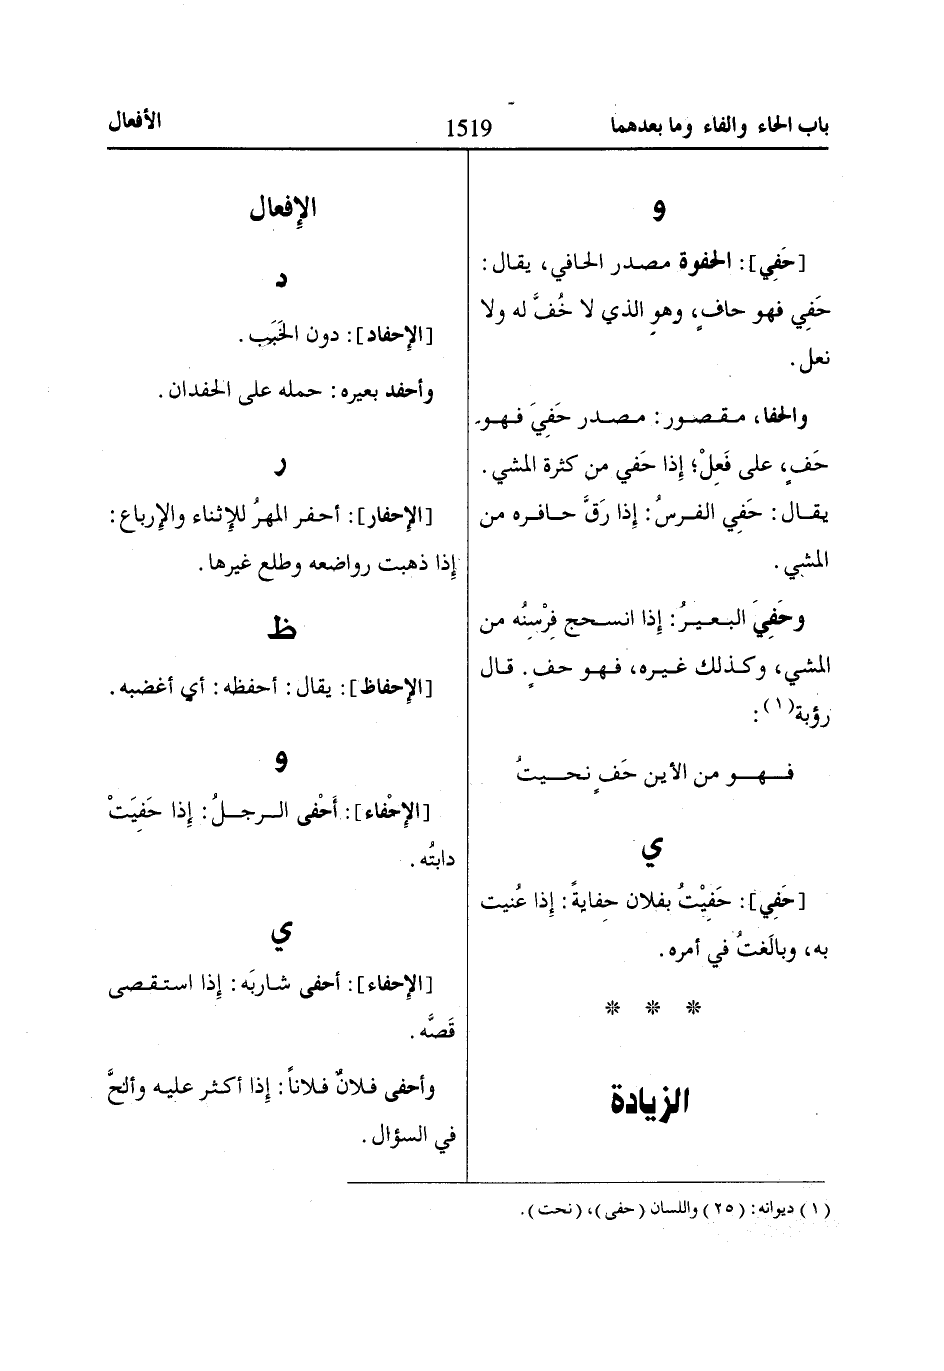 باب الحاء والفاء وما بعدهما
1519
الأفعال
و
[حَفِي]: الحفوة مصدر الحافي، يقال:
حَفِي فهو حافٍ، وهو الذي لا خُفَّ له ولا
نعل.
والحفا، مقصور: مصدر حَفِيَ فهو
حَفٍ، على فَعِلْ؛ إذا حَفي من كثرة المشي.
يقال: حَفِي الفرسُ: إذا رَقَّ حافره من
المشي.
وحَفِيَ البعيرُ: إذا انسحج فِرْسِنُه من
المشي، وكذلك غيره، فهو حفٍ. قال
رؤبة(١):
فهو من الأين حَفٍ نحيتُ
ي
[حَفِي]: حَفِيْتُ بفلان حِفايةً: إذا عُنيت
به، وبالَغتُ في أمره.
* * *
الزيادة
الإفعال
د
[الإحفاد]: دون الخَبَب.
وأحفد بعيره: حمله على الحفدان.
ر
[الإحفار]: أحفر المهرُ للإثناء والإرباع:
إذا ذهبت رواضعه وطلع غيرها.
ظ
[الإحفاظ]: يقال: أحفظه: أي أغضبه.
و
[الإحْفاء]: أَحْفى الرجلُ: إذا حَفِيَتْ
دابتُه.
ي
[الإحفاء]: أحفى شاربَه: إذا استقصى
قَصَّه.
وأحفى فلانٌ فلاناً: إذا أكثر عليه وألحَّ
في السؤال.
(١) ديوانه: (٢٥) واللسان (حفى)، (نحت).